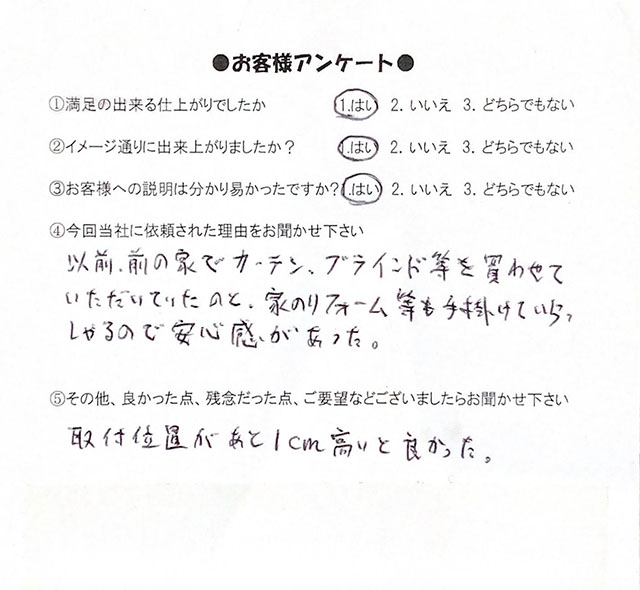 ●お客様アンケート●
①満足の出来る仕上がりでしたか 1.はい 2.いいえ 3.どちらでもない
②イメージ通りに出来上がりましたか？ 1.はい 2.いいえ 3.どちらでもない
③お客様への説明は分かり易かったですか？ 1.はい 2.いいえ 3.どちらでもない
④今回当社に依頼された理由をお聞かせ下さい
以前、前の家でカーテン、ブラインド等を買わせて
いただいていたのと、家のリフォーム等も手掛けていらっ
しゃるので安心感があった。
⑤その他、良かった点、残念だった点、ご要望などございましたらお聞かせ下さい
取付位置があと1cm高いと良かった。